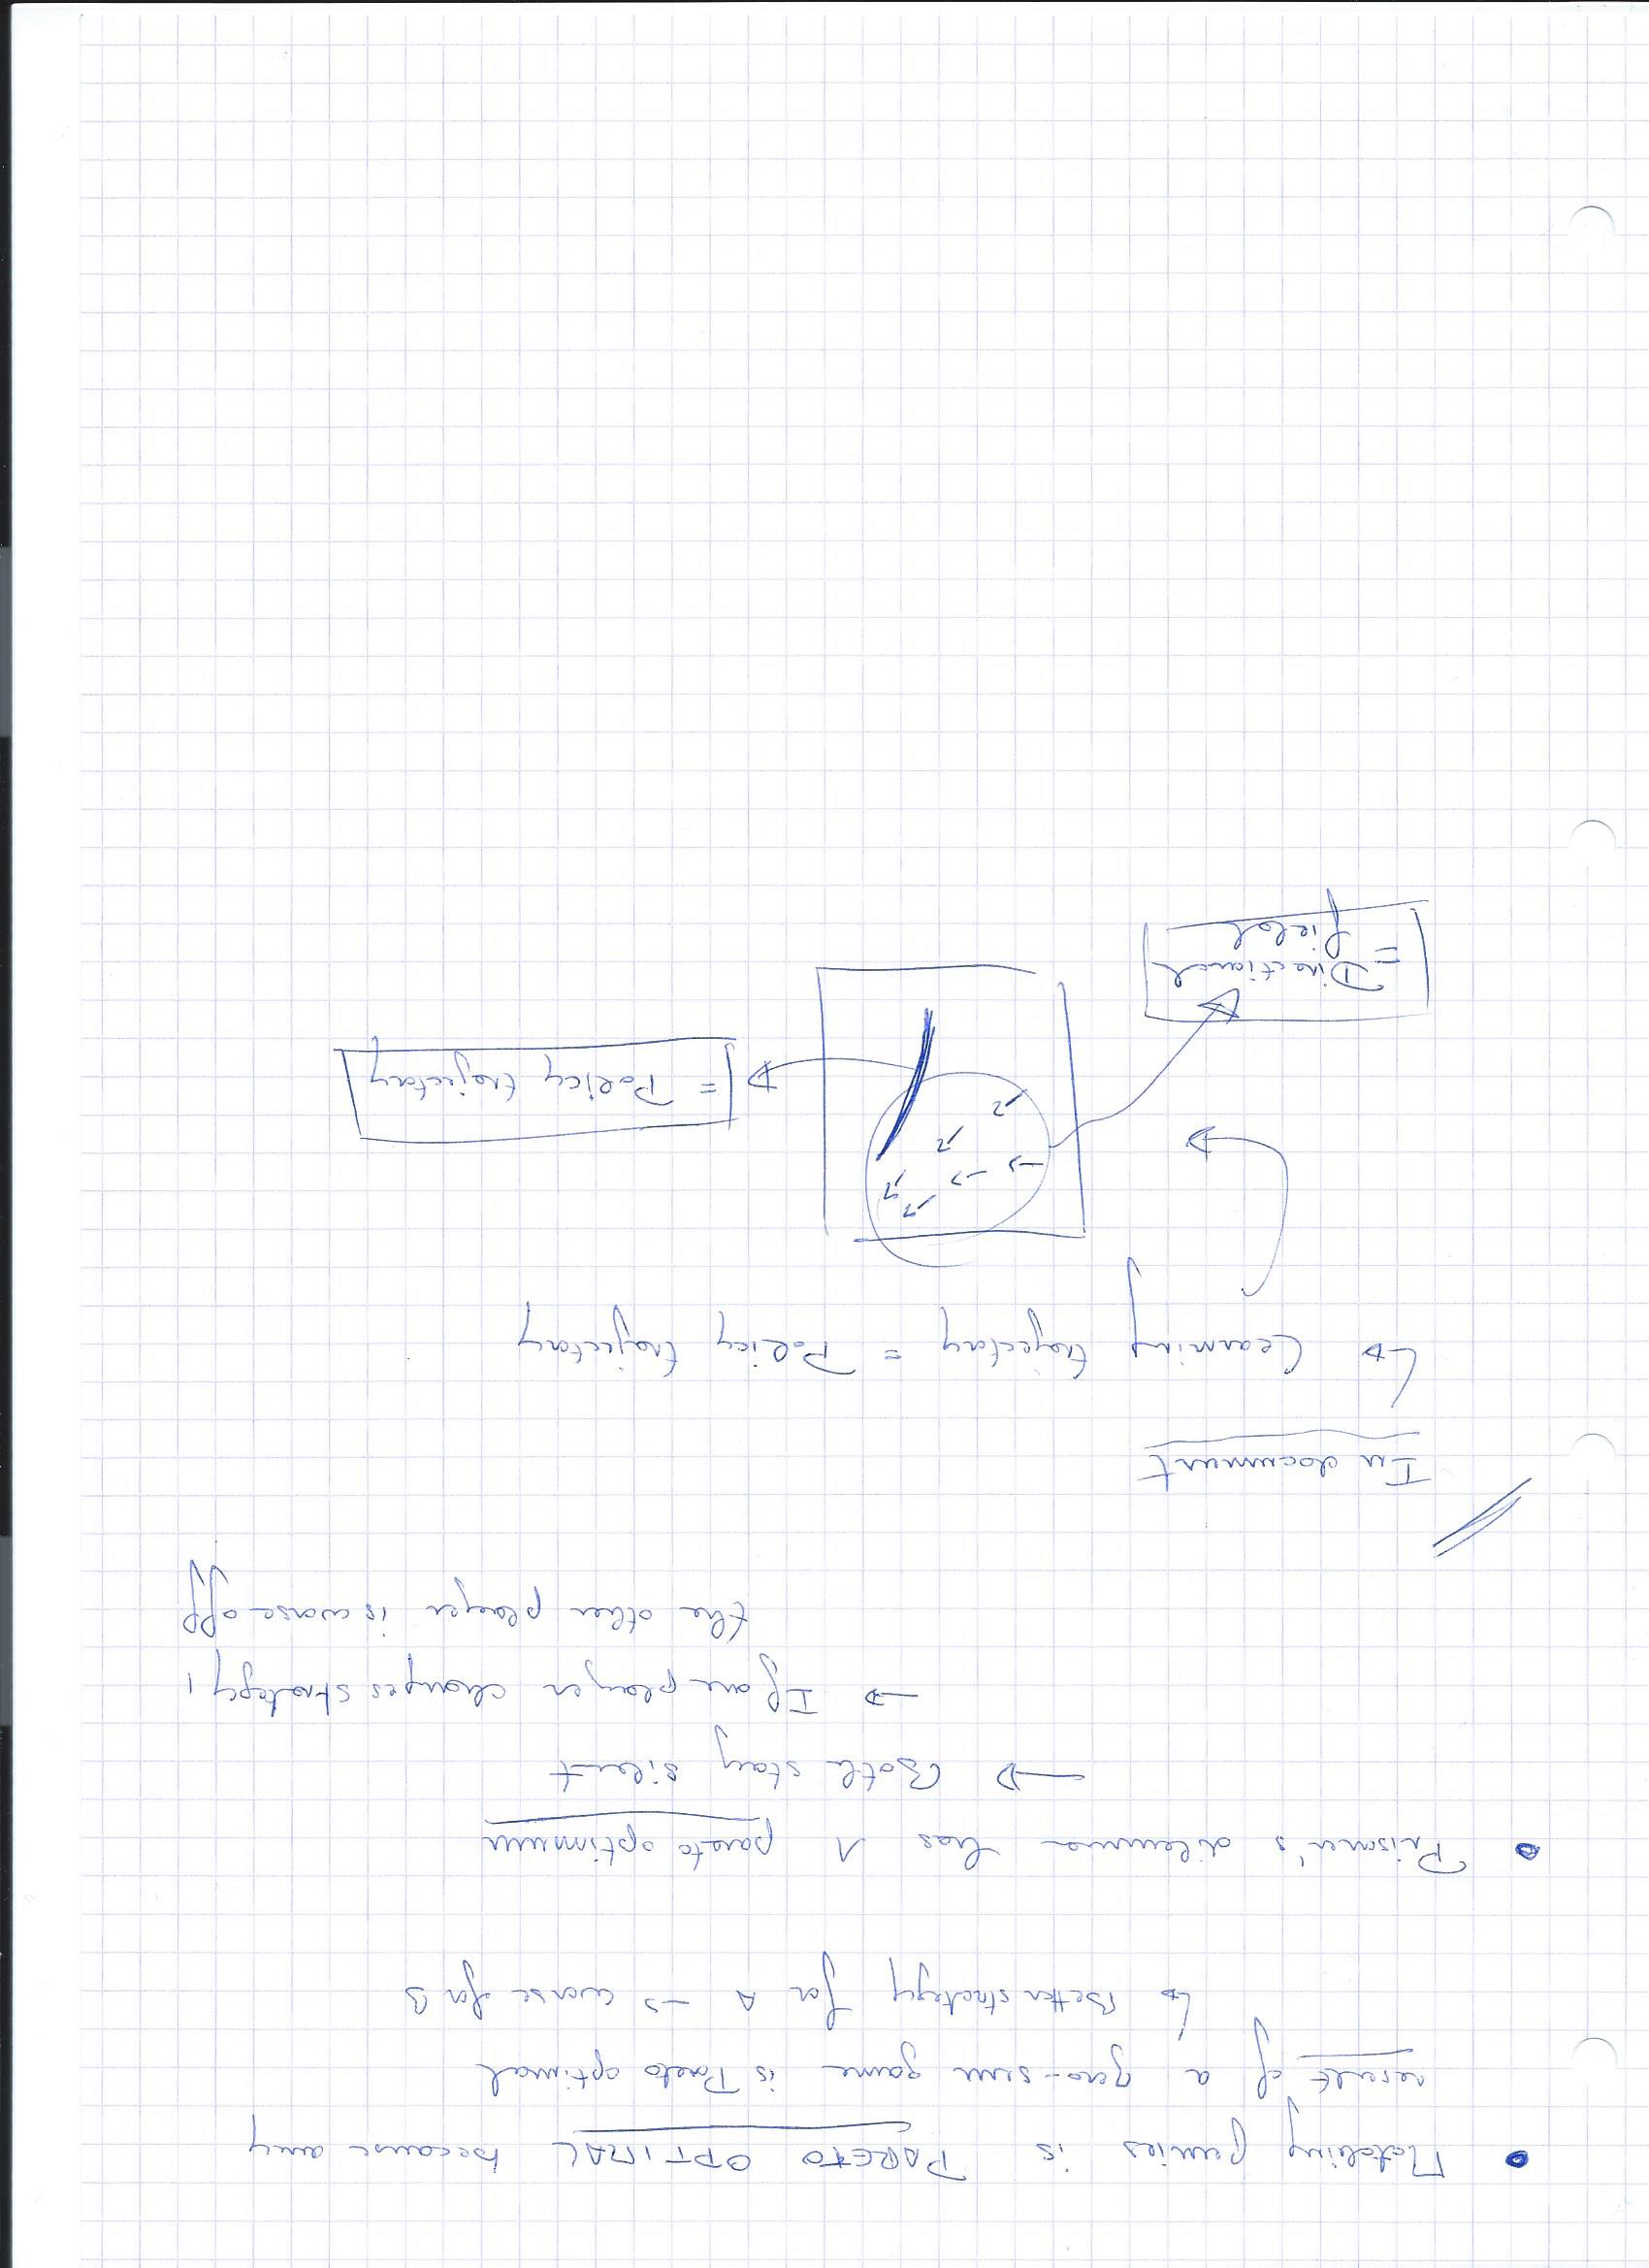 • Matching pennies is PARETO OPTIMAL because any
result of a zero-sum game is Pareto optimal
↳ Better strategy for A → worse for B
• Prisoner's dilemma has 1 pareto optimum
→ Both stay silent
→ If one player changes strategy,
the other player is worse off
In document
↳ Learning trajectory = Policy trajectory
= Policy trajectory
= Directional
field